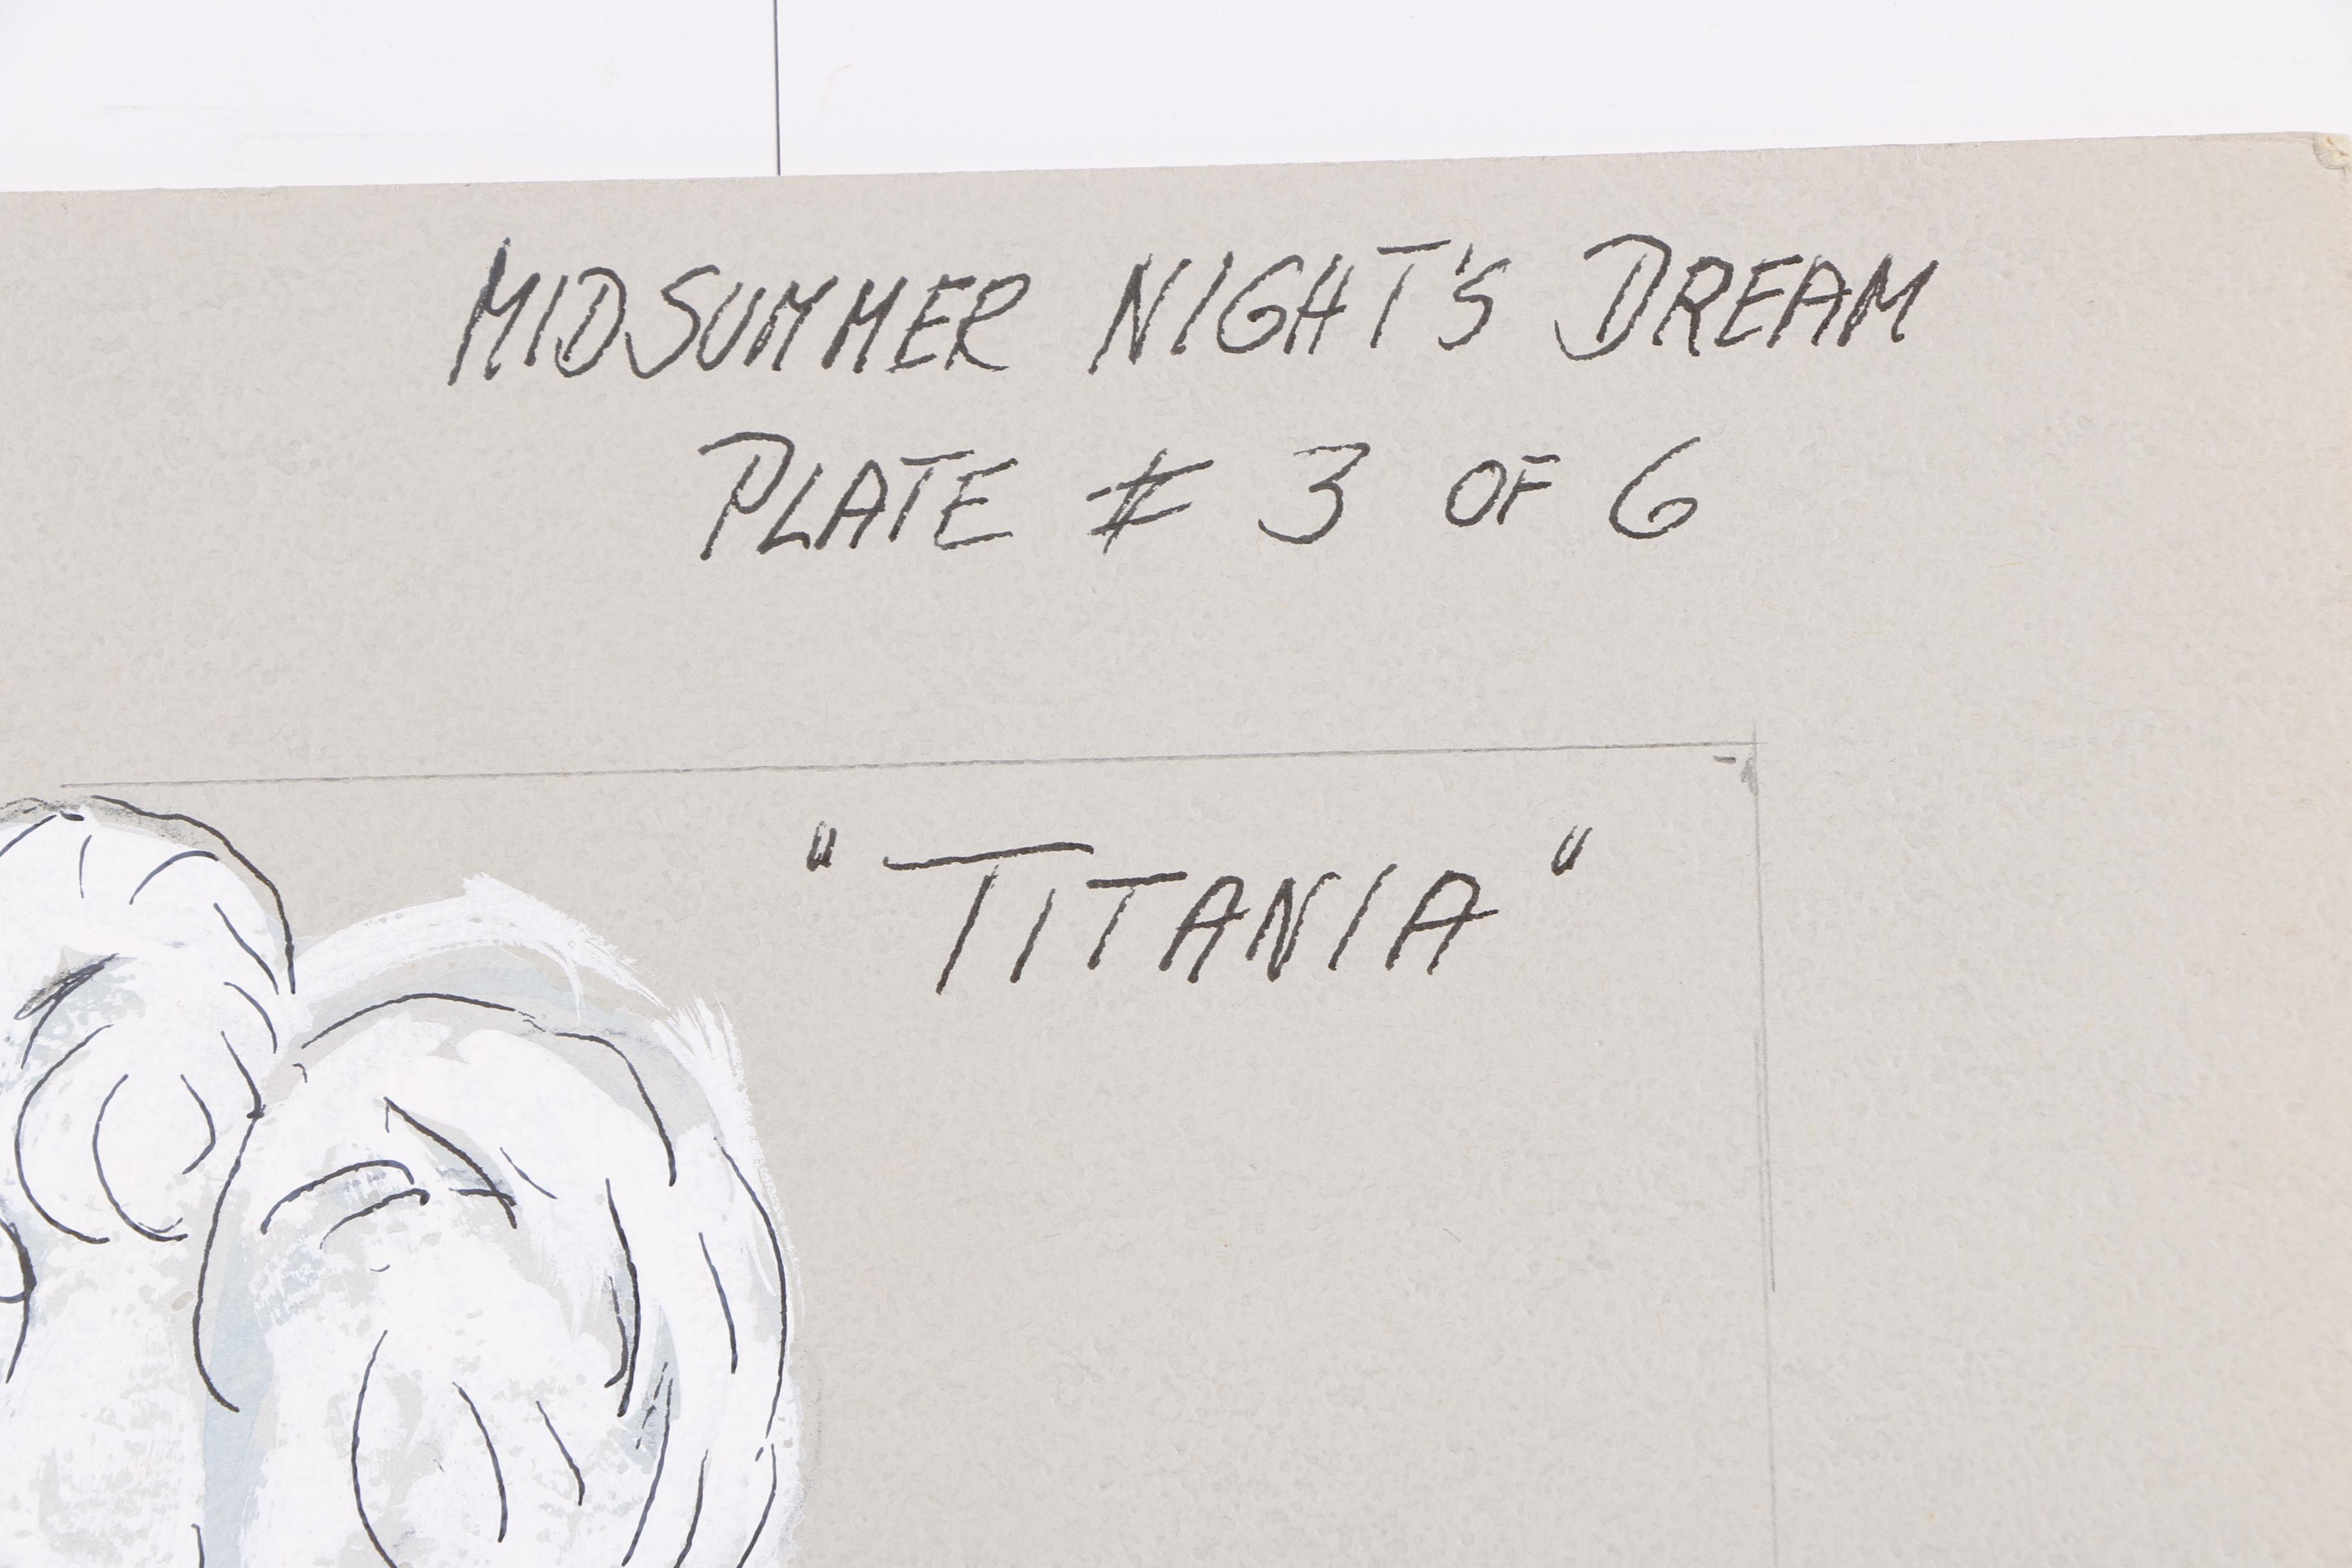 MIDSUMMER NIGHT'S DREAM
PLATE # 3 OF 6
"TITANIA"